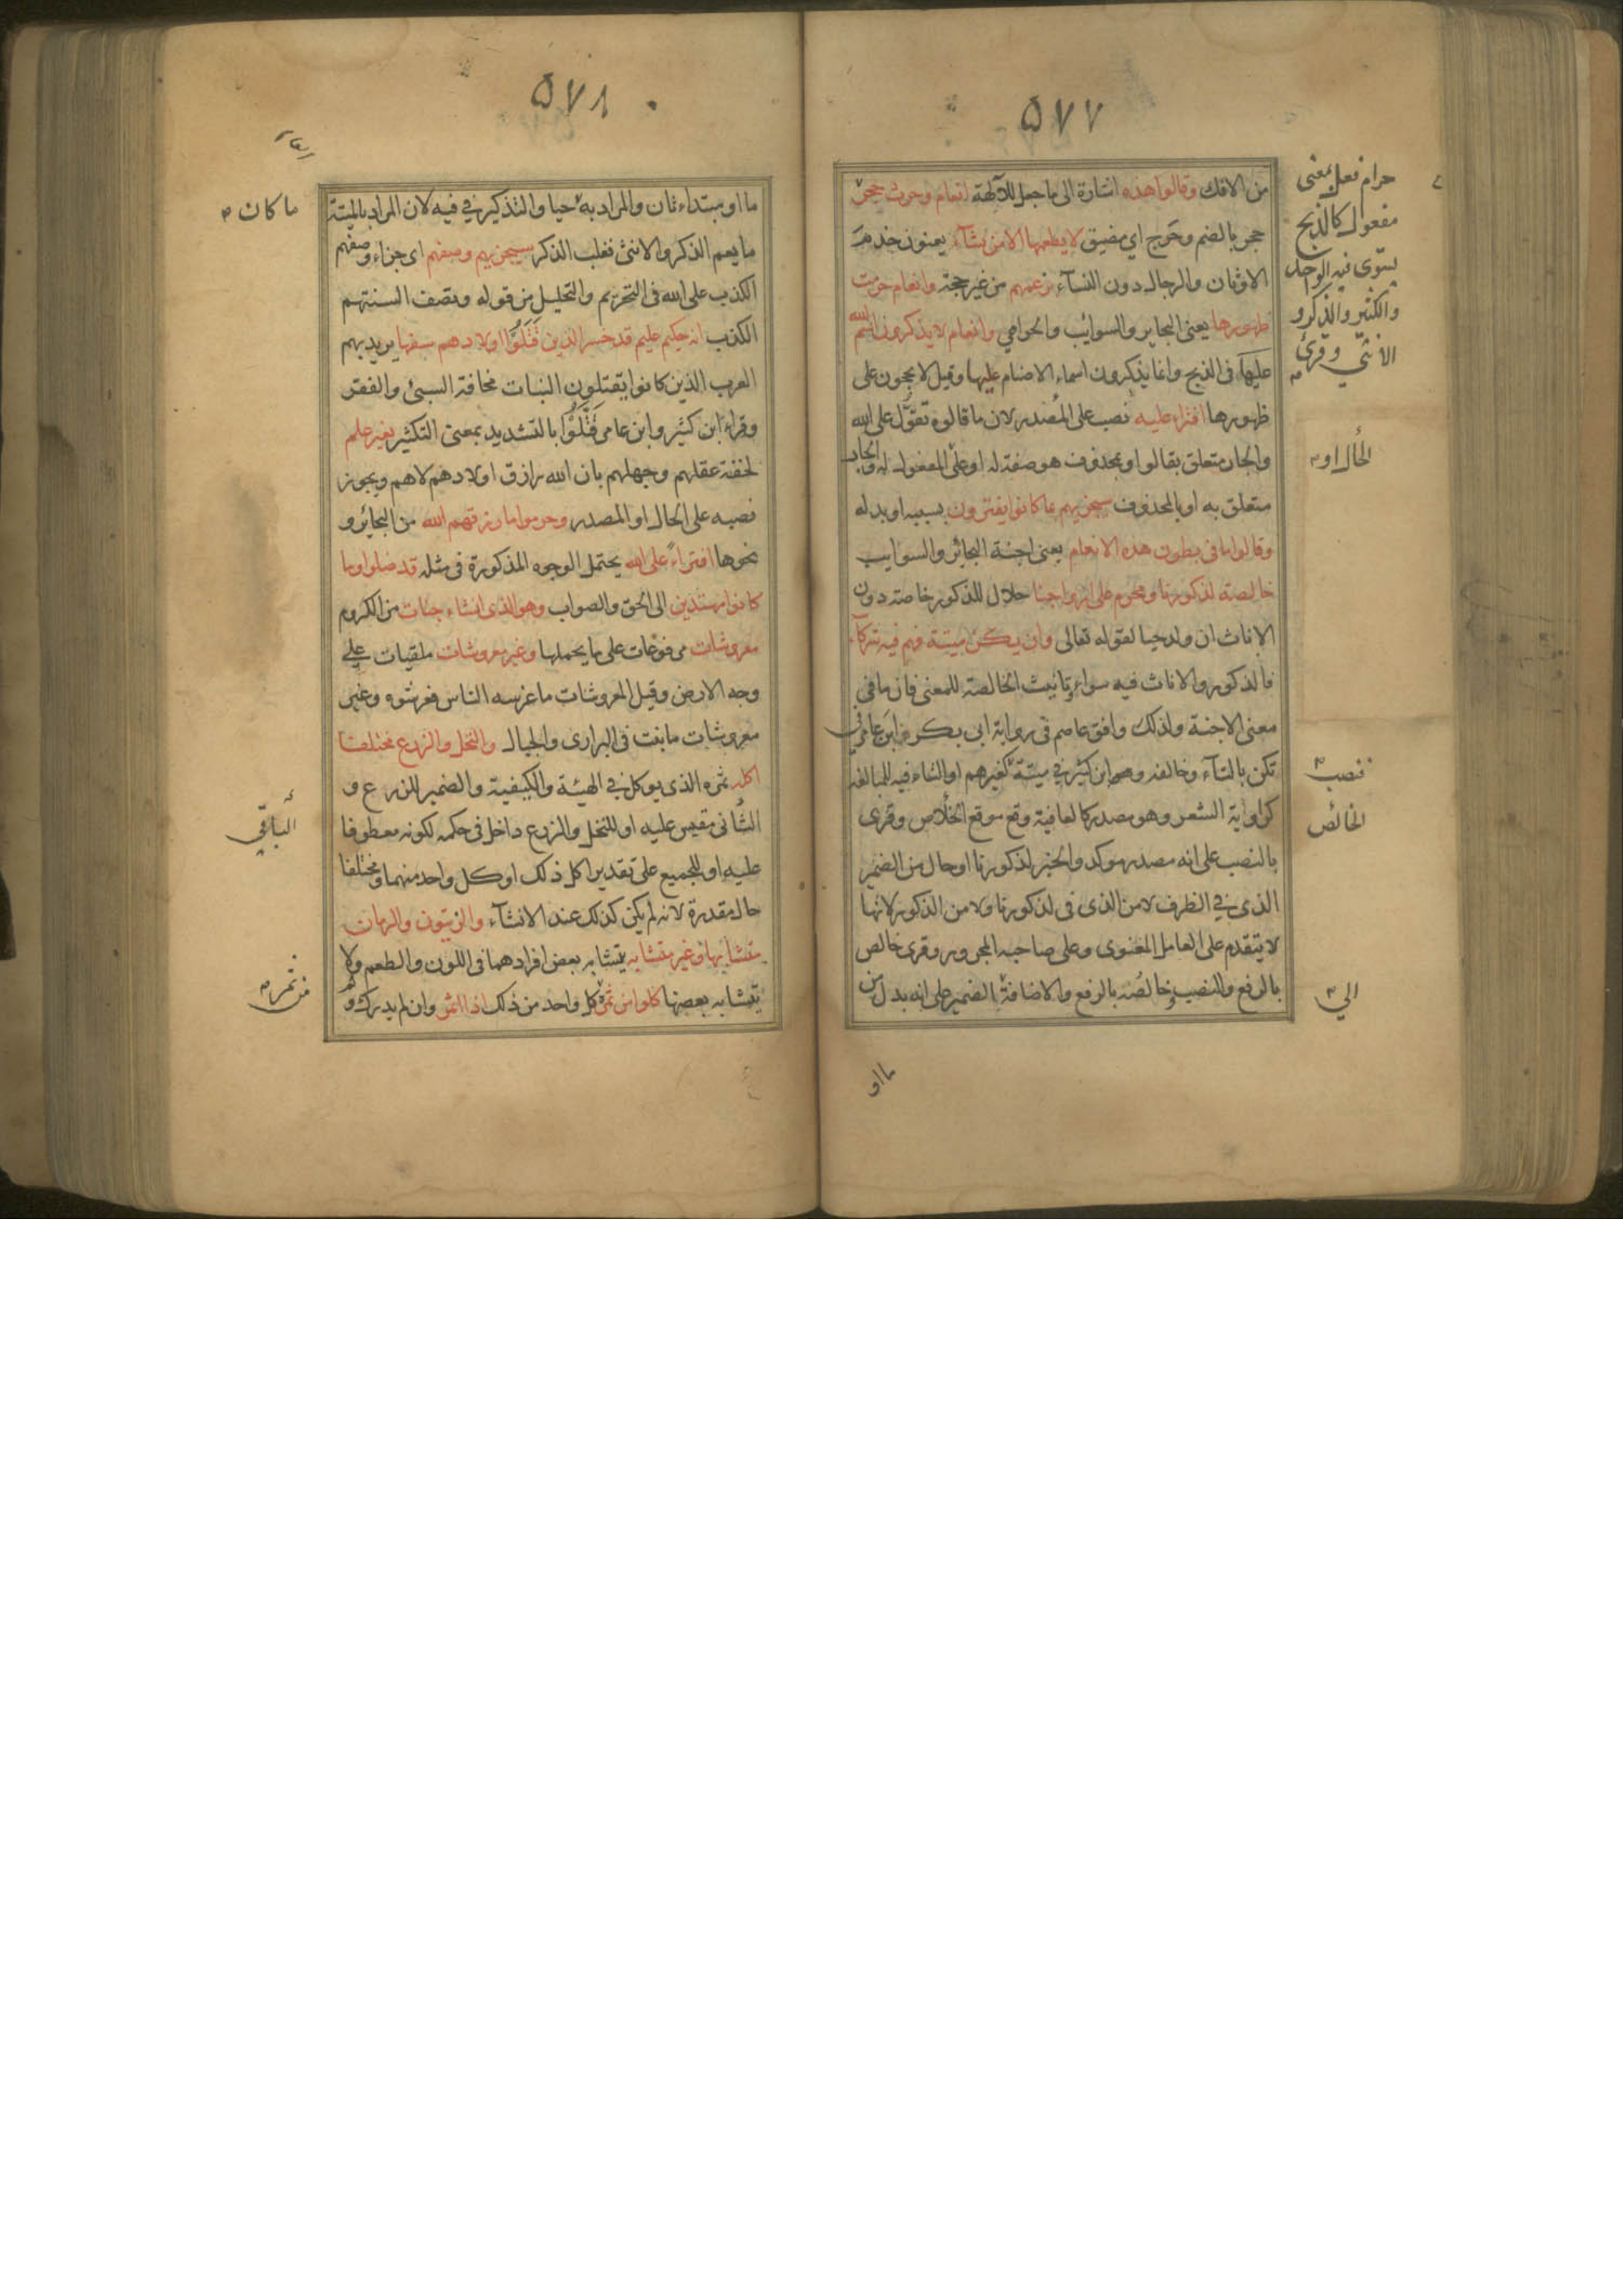 ٥٧٧
من الافك وقالوا هذه اشارة الى ما جعل للآلهة انعام وحرث حجر
حرام فعل بمعنى
مفعول كالذبح
يستوى فيه الواحد
والكثير والذكر و
الانثى وقرئ
حجر بالضم وحرج اي مضيق لا يطعمها الا من نشآء يعنون خدمة
الاوثان والرجال دون النسآء بزعمهم من غير حجة وانعام حرمت
ظهورها يعنى البحاير والسوائب والحوامي وانعام لا يذكرون اسم الله
عليها فى الذبح وانما يذكرون اسماء الاصنام عليها وقيل لا يحجون على
ظهورها افتراء عليه نصب على المصدر لان ما قالوه تقوّل على الله
والجار متعلق بقالوا او بمحذوف هو صفة له او على المفعول له والجار
الحال او
متعلق به او بالمحذوف سيجزيهم بما كانوا يفترون بسببه او بدله
وقالوا ما فى بطون هذه الانعام يعنى اجنة البحائر والسوايب
خالصة لذكورنا ومحرم على ازواجنا حلال للذكور خاصة دون
الاناث ان ولد حيا لقوله تعالى وان يكن ميتة فهم فيه شركآء
فالذكور والاناث فيه سواء وتانيث الخالصة للمعنى فان ما في
معنى الاجنة ولذلك وافق عاصم فى رواية ابى بكر ابن عامر في
تكن بالتآء وخالفه وهو ابن كثير في ميتة كغيرهم او التاء فيه للمبالغة
فنصب
كراوية الشعر وهو مصدر كالعافية وقع موقع الخلاص وقرى
الخالص
بالنصب على انه مصدر موكد والخبر لذكورنا او حال من الضمير
الذى في الظرف لا من الذى فى لذكورنا ولا من الذكور لانها
لا يتقدم على العامل المعنوى وعلى صاحبه المجرور وقرى خالص
بالرفع والنصب وخالصُه بالرفع والاضافة الضمير على انه بدل من
الي
ما او
٥٧٨
ما او مبتداء ثان والمراد به حيا والتذكير في فيه لان المراد بالميتة
ما كان
ما يعم الذكر والانثى فغلب الذكر سيجزيهم وصفهم اى جزاء وصفهم
الكذب على الله فى التحريم والتحليل من قوله وتصف السنتهم
الكذب انه حكيم عليم قد خسر الذين قتلوا اولادهم سفها يريد بهم
العرب الذين كانوا يقتلون البنات مخافة السبئ والفقر
وقراء ابن كثير وابن عامر قتّلوا بالتشديد بمعنى التكثير بغير علم
لخفة عقلهم وجهلهم بان الله رازق اولادهم لاهم ويجوز
نصبه على الحال او المصدر وحرموا ما رزقهم الله من البحائر و
نحوها افتراءً على الله يحتمل الوجوه المذكورة فى مثله قد ضلوا وما
كانوا مهتدين الى الحق والصواب وهو الذى انشاء جنات من الكروم
معروشات مرفوعات على ما يحملها وغير معروشات ملقيات على
وجه الارض وقيل المعروشات ما غرسه الناس فعرشوه وغير
معروشات ما نبت فى البرارى والجبال والنخل والزرع مختلفا
اكله ثمره الذى يوكل في الهيئة والكيفية والضمير للزرع و
الثانى مقيس عليه او للنخل والزرع داخل فى حكمه لكونه معطوفا
الباقي
عليه او للجميع على تقدير اكل ذلك او كل واحد منهما ومختلفا
حال مقدرة لانه لم يكن كذلك عند الانشآء والزيتون والرمان
متشابها وغير متشابه يتشابه بعض افرادهما فى اللون والطعم ولا
يتشابه بعضها كلوا من ثمره كل واحد من ذلك اذا اثمر وان لم يدرك و
من ثمر